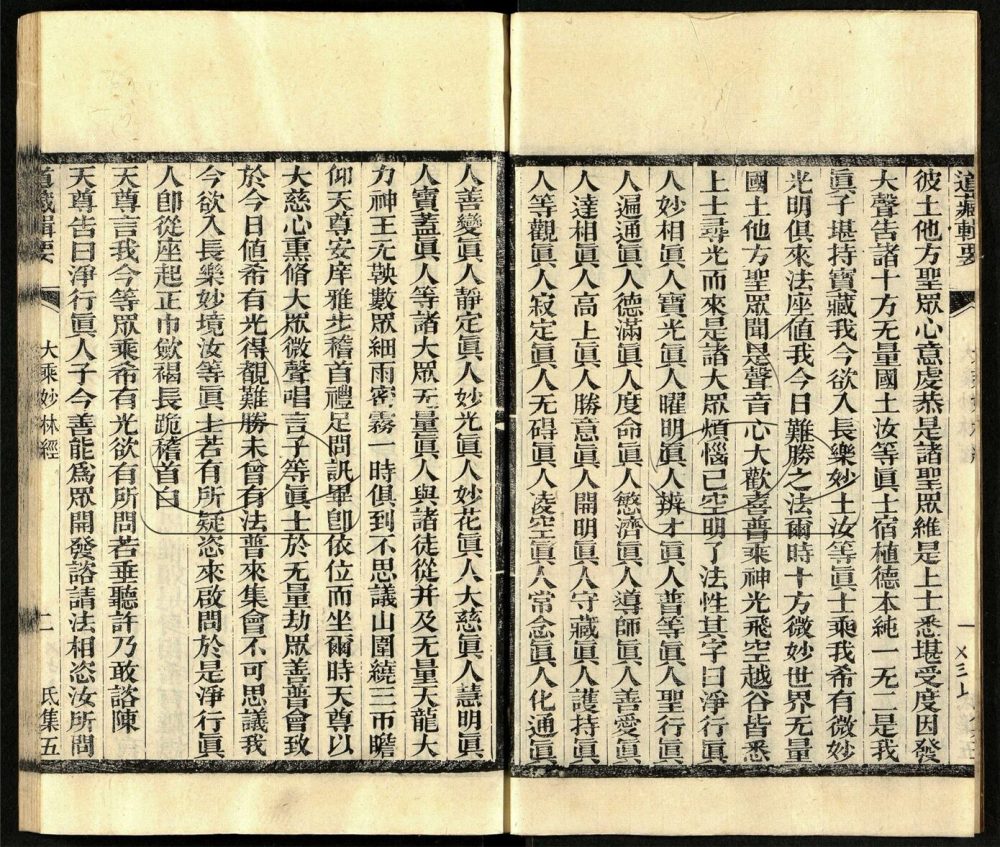 道藏輯要
彼土他方聖眾心意虔恭是諸聖眾維是上士悉堪受度因發
大聲告諸十方无量國土汝等眞士宿植德本純一无二是我
眞子堪持寶藏我今欲入長樂妙土汝等眞士乘我希有微妙
光明俱來法座値我今日難勝之法爾時十方微妙世界无量
國土他方聖眾聞是聲音心大歡喜普乘神光飛空越谷皆悉
上士尋光而來是諸大眾煩惱已空明了法性其字曰淨行眞
人妙相眞人寶光眞人曜明眞人辨才眞人普等眞人聖行眞
人遍通眞人德滿眞人度命眞人慜濟眞人導師眞人善愛眞
人達相眞人高上眞人勝意眞人開明眞人守藏眞人護持眞
人等觀眞人寂定眞人无碍眞人凌空眞人常念眞人化通眞
人善變眞人靜定眞人妙光眞人妙花眞人大慈眞人慧明眞
人寶蓋眞人等諸大眾无量眞人與諸徒從幷及无量天龍大
力神王无鞅數眾細雨密霧一時俱到不思議山圍繞三帀瞻
仰天尊安庠雅步稽首禮足問訊畢卽依位而坐爾時天尊以
大慈心熏脩大眾微聲唱言子等眞士於无量劫眾善普會致
於今日値希有光得覩難勝未曾有法普來集會不可思議我
今欲入長樂妙境汝等眞士若有所疑恣來啟問於是淨行眞
人卽從座起正巾斂褐長跪稽首白
天尊言我今等眾乘希有光欲有所問若垂聽許乃敢諮陳
天尊告曰淨行眞人子今善能爲眾開發諮請法相恣汝所問
道藏輯要
大乘妙林經
二
氐集五